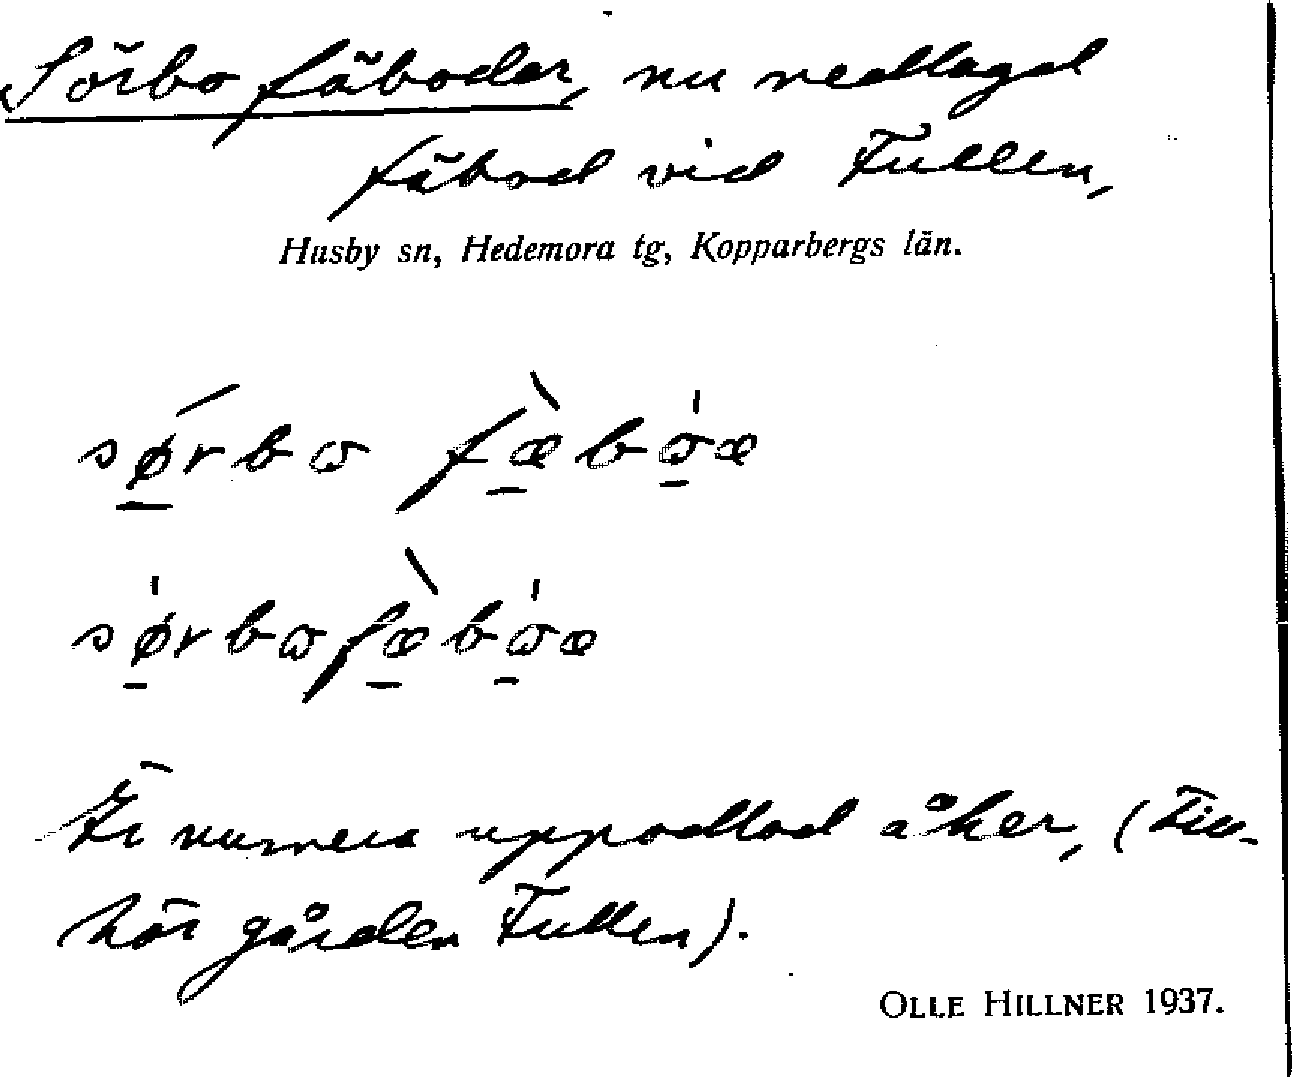 Sörbo fäboder, nu nedlagd
fäbod vid Fullen,
Husby sn, Hedemora tg, Kopparbergs län.
sǿ̱rbɷ fæ̱̀bɷ̱̍æ
sø̱̍rbɷfæ̱̀bɷ̱̍æ
Är numera uppodlad åker, (Till-
hör gården Fullen).
OLLE HILLNER 1937.